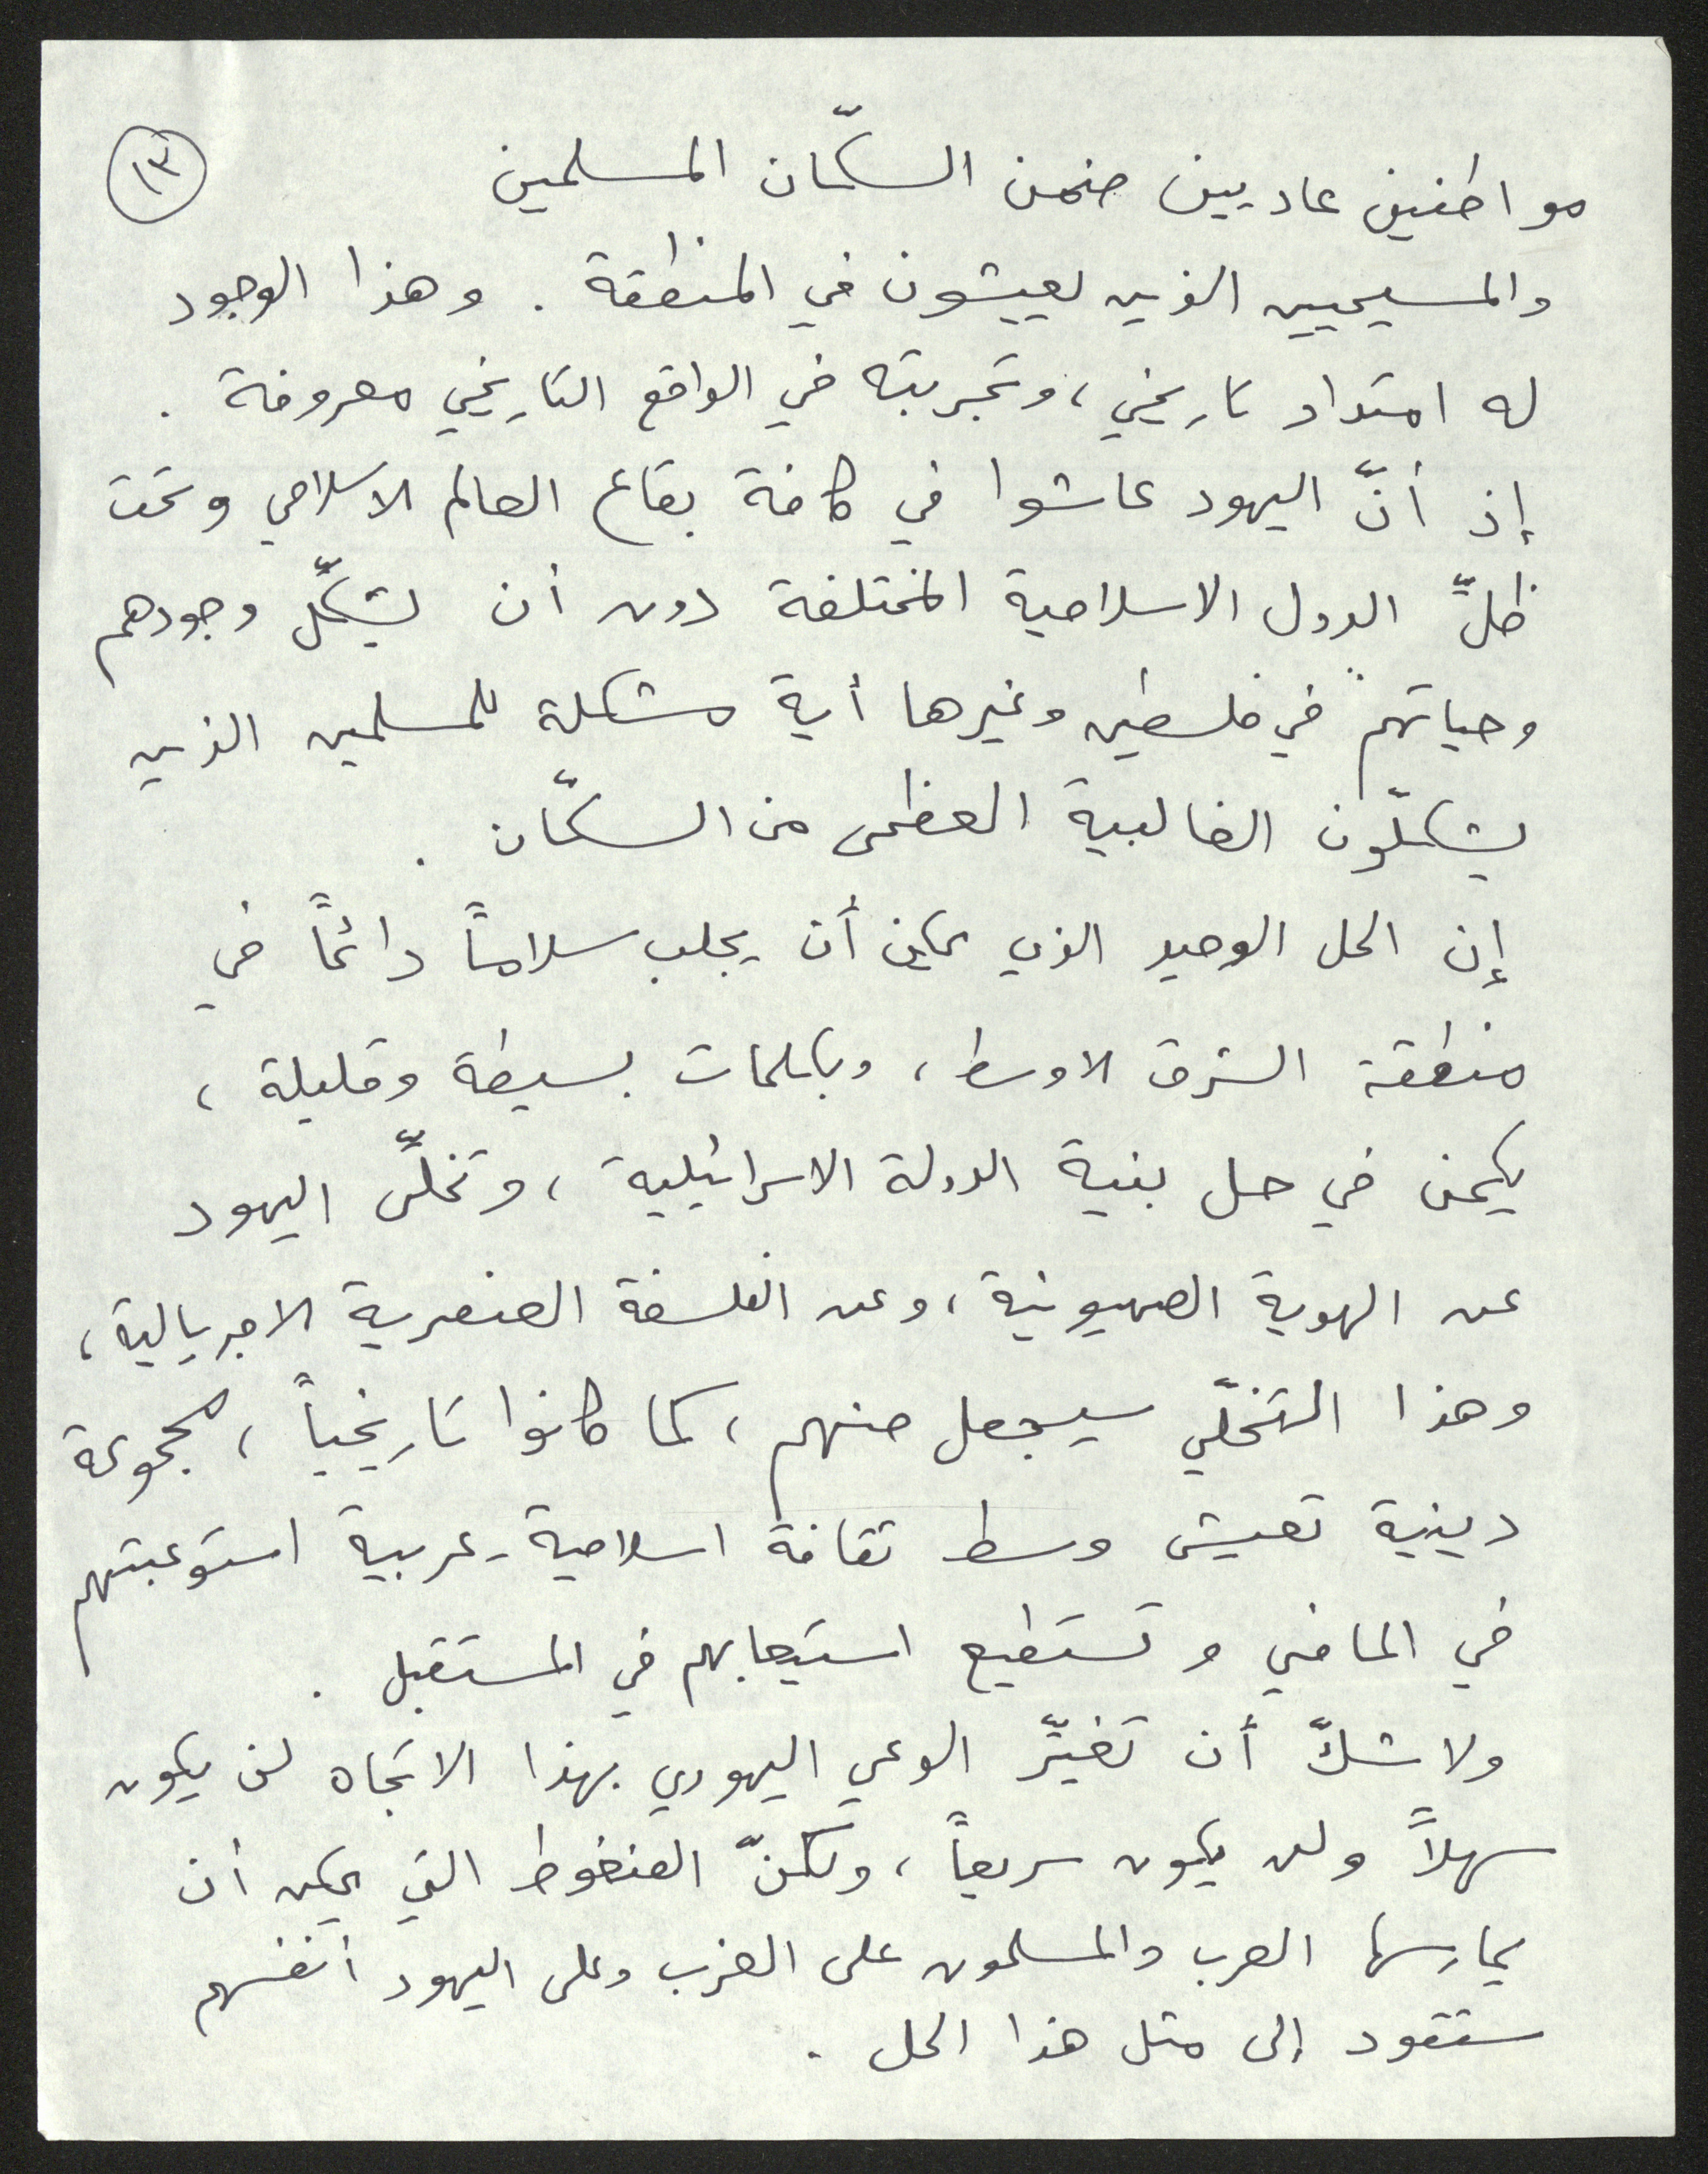 ١٣
مواطنين عاديين ضمن السكّان المسلمين
والمسيحيين الذين يعيشون في المنطقة . وهذا الوجود
له امتداد تاريخي ، وتجربته في الواقع التاريخي معروفة .
إذ أنّ اليهود عاشوا في كافة بقاع العالم الاسلامي وتحت
ظلّ الدول الاسلامية المختلفة دون أن يشكّل وجودهم
وحياتهم في فلسطين وغيرها أية مشكلة للمسلمين الذين
يشكلّون الغالبية العظمى من السكّان .
إن الحل الوحيد الذي يمكن أن يجلب سلاماً دائماً في
منطقة الشرق الاوسط ، وبكلمات بسيطة وقليلة ،
يكمن في حل بنية الدولة الاسرائيلية ، وتخلّي اليهود
عن الهوية الصهيونية ، وعن الفلسفة العنصرية الامبريالية ،
وهذا التخلّي سيجعل منهم ، كما كانوا تاريخياً ، مجموعة
دينية تعيش وسط ثقافة اسلامية - عربية استوعبتهم
في الماضي وتستطيع استيعابهم في المستقبل .
ولا شكّ أن تغيّر الوعي اليهودي بهذا الاتجاه لن يكون
سهلاً ولن يكون سريعاً ، ولكنّ الضغوط التي يمكن أن
يمارسها العرب والمسلمون على الغرب وعلى اليهود أنفسهم
ستقود إلى مثل هذا الحل .